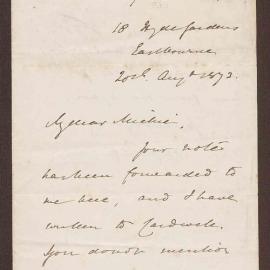 18 Hyde Gardens
Eastbourne
20th Augt 1873.
My dear Michie,
Your note
has been forwarded to
me here, and I have
written to Cardwell.
You don't mention